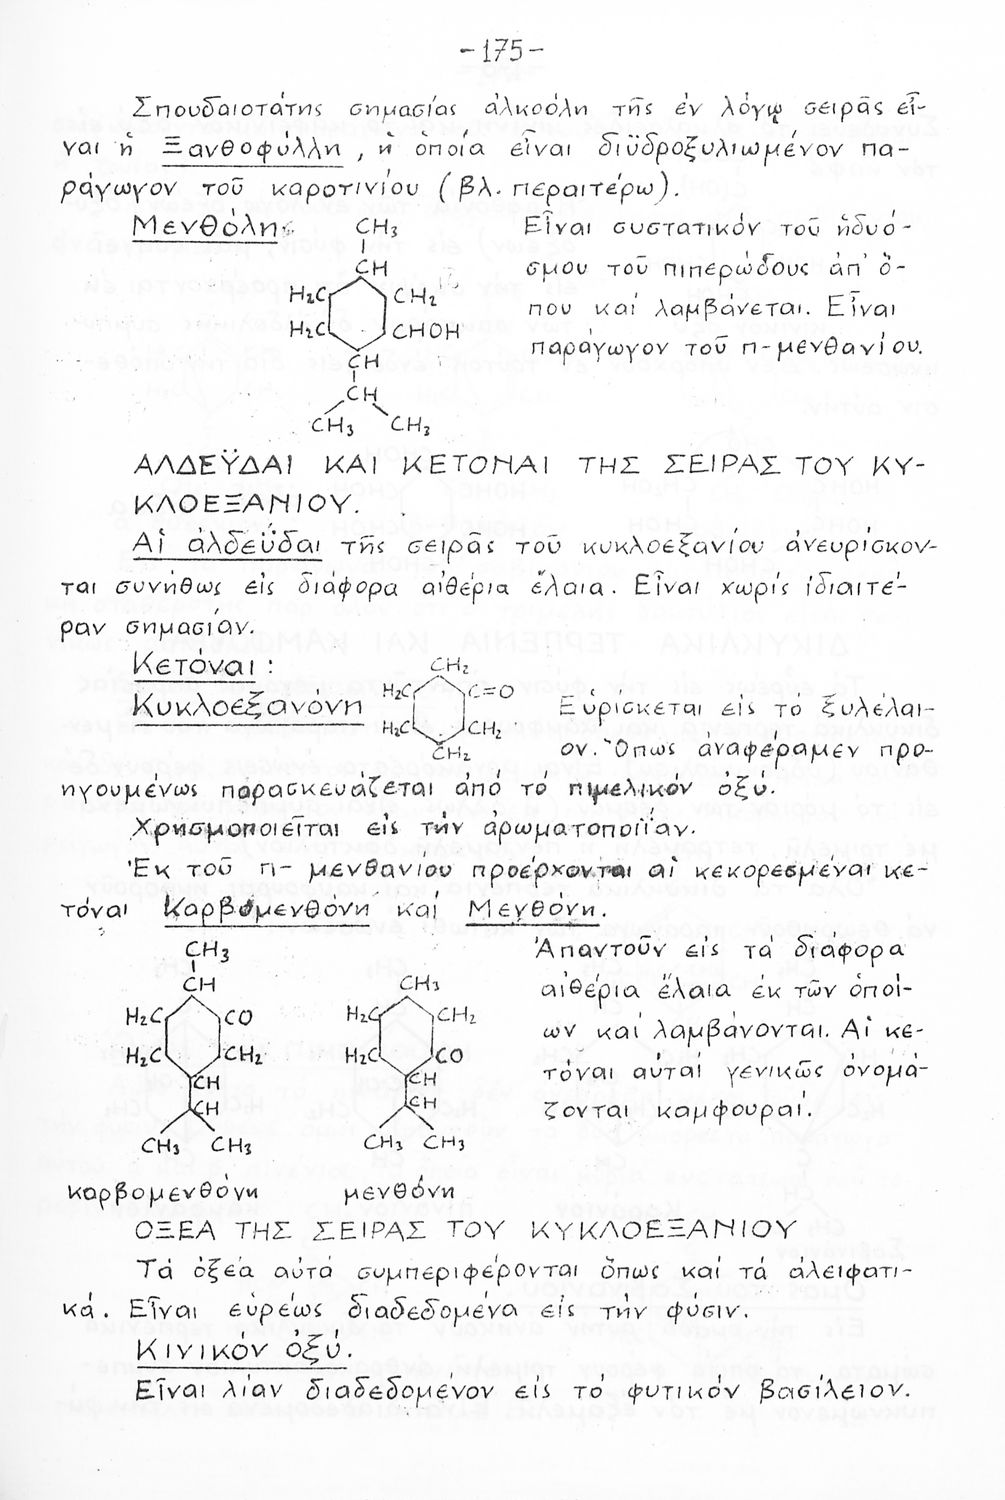 -175-
Σπουδαιοτάτης σημασίας ἀλκοόλη τῆς ἐν λόγῳ σειρᾶς εἶ-
ναι ἡ Ξανθοφύλλη, ἡ ὁποία εἶναι διϋδροξυλιωμένον πα-
ράγωγον τοῦ καροτινίου (βλ. περαιτέρω).
Μενθόλη:
CH3
CH
H2C CH2
H2C CHOH
CH
CH
CH3 CH3
Εἶναι συστατικόν τοῦ ἡδυό-
σμου τοῦ πιπερώδους ἀπ' ὅ-
που καί λαμβάνεται. Εἶναι
παράγωγον τοῦ π-μενθανίου.
ΑΛΔΕΫΔΑΙ ΚΑΙ ΚΕΤΟΝΑΙ ΤΗΣ ΣΕΙΡΑΣ ΤΟΥ ΚΥ-
ΚΛΟΕΞΑΝΙΟΥ.
Αἱ ἀλδεΰδαι τῆς σειρᾶς τοῦ κυκλοεξανίου ἀνευρίσκον-
ται συνήθως εἰς διάφορα αἰθέρια ἔλαια. Εἶναι χωρίς ἰδιαιτέ-
ραν σημασίαν.
Κετόναι:
Κυκλοεξανόνη
CH2
H2C C=O
H2C CH2
CH2
Εὑρίσκεται εἰς το ξυλέλαι-
ον. Ὅπως ἀναφέραμεν προ-
ηγουμένως παρασκευάζεται ἀπό τό πιμελικόν ὀξύ.
Χρησμοποιεῖται εἰς τήν ἀρωματοποιΐαν.
Ἐκ τοῦ π- μενθανίου προέρχονται αἱ κεκορεσμέναι κε-
τόναι Καρβομενθόνη καί Μενθόνη.
CH3
CH
H2C CO
H2C CH2
CH
CH
CH3 CH3
καρβομενθόνη
CH3
H2C CH2
H2C CO
CH
CH
CH3 CH3
μενθόνη
Ἀπαντοῦν εἰς τά διάφορα
αἰθέρια ἔλαια ἐκ τῶν ὁποί-
ων καί λαμβάνονται. Αἱ κε-
τόναι αὐταί γενικῶς ὀνομά-
ζονται καμφουραί.
ΟΞΕΑ ΤΗΣ ΣΕΙΡΑΣ ΤΟΥ ΚΥΚΛΟΕΞΑΝΙΟΥ
Τά ὀξέα αὐτά συμπεριφέρονται ὅπως καί τά ἀλειφατι-
κά. Εἶναι εὐρέως διαδεδομένα εἰς τήν φύσιν.
Κινικόν ὀξύ.
Εἶναι λίαν διαδεδομένον εἰς το φυτικόν βασίλειον.